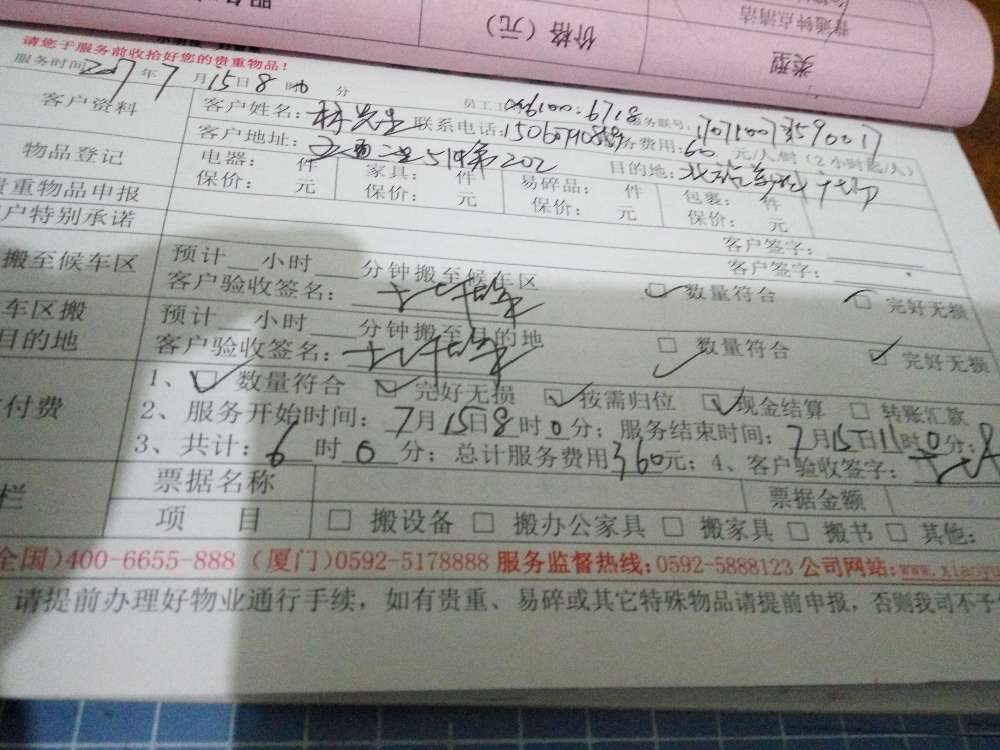 价格（元）
类型
普通钟点清洁
请您于服务前收拾好您的贵重物品！
服务时间 2017年7月15日8时 分
客户资料
客户姓名：林先生 联系电话： 费用：60元/人/时（2小时起/人）
客户地址： 202 目的地：
物品登记
电器： 件 家具： 件 易碎品： 件 包裹： 件
保价： 元 保价： 元 保价： 元 保价： 元
贵重物品申报 客户签字：
户特别承诺 客户签字：
搬至候车区 预计 小时 分钟搬至候车区
客户验收签名： 数量符合 完好无损
车区搬 预计 小时 分钟搬至目的地
目的地 客户验收签名： 数量符合 完好无损
付费 1、 数量符合 完好无损 按需归位 现金结算 转账汇款
2、服务开始时间：7月15日8时0分；服务结束时间：7月15日11时0分；
3、共计：6时0分；总计服务费用360元；4、客户验收签字：
栏 票据名称 票据金额
项 目 搬设备 搬办公家具 搬家具 搬书 其他：
全国）400-6655-888（厦门）0592-5178888 服务监督热线：0592-5888123 公司网站：
请提前办理好物业通行手续，如有贵重、易碎或其它特殊物品请提前申报，否则我司不予